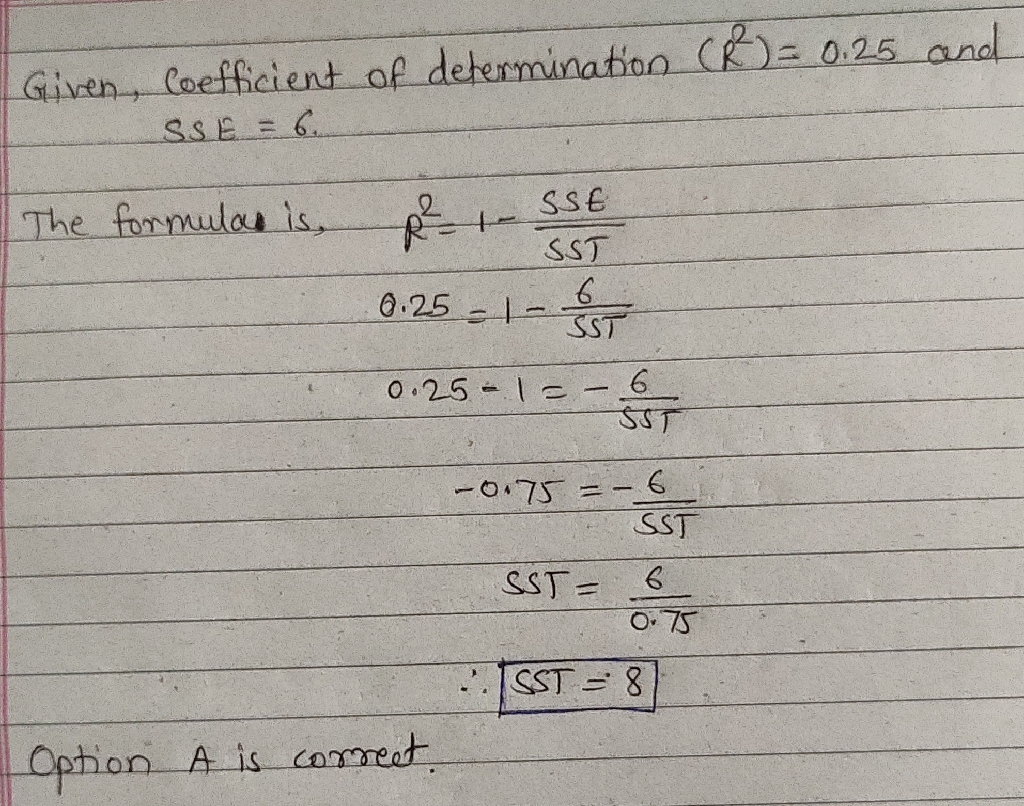 Given, Coefficient of determination (R²) = 0.25 and
SSE = 6.
The formulas is, R² = 1 - SSE/SST
0.25 = 1 - 6/SST
0.25 - 1 = - 6/SST
-0.75 = - 6/SST
SST = 6/0.75
∴ SST = 8
Option A is correct.